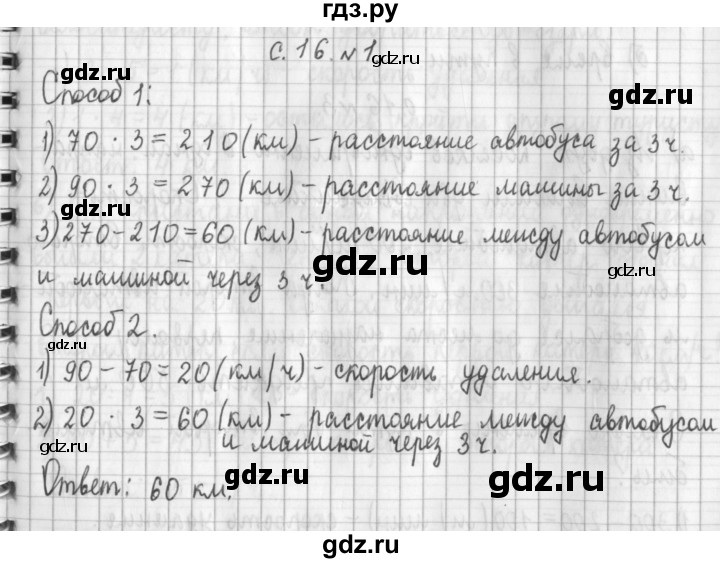 гдз.ру
с. 16. №1
gdz.ru
gdz.ru
Способ 1:
gdz.ru
1) 70 · 3 = 210 (км) - расстояние автобуса за 3 ч.
gdz.ru
2) 90 · 3 = 270 (км) - расстояние машины за 3 ч.
gdz.ru
3) 270 - 210 = 60 (км) - расстояние между автобусом
gdz.ru
gdz.ru
и машиной через 3 ч.
Способ 2
gdz.ru
1) 90 - 70 = 20 (км/ч) - скорость удаления.
2) 20 · 3 = 60 (км) - расстояние между автобусом
и машиной через 3 ч.
gdz.ru
gdz.ru
gdz.ru
Ответ: 60 км.
gdz.ru